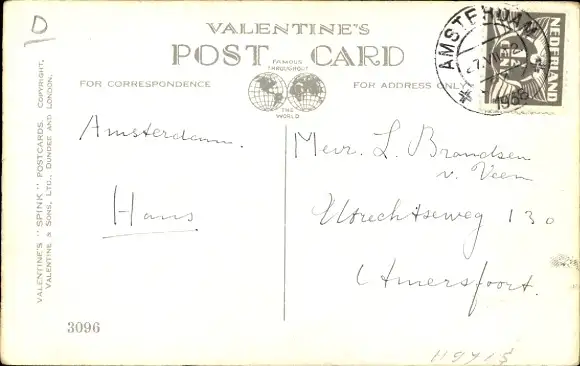 D
VALENTINE'S
POST CARD
FAMOUS
THROUGHOUT
THE
WORLD
FOR CORRESPONDENCE
FOR ADDRESS ONLY
AMSTERDAM
1938
NEDERLAND
Amsterdam.
Hans
Mevr. L. Brandsen
v. Veen
Utrechtseweg 130
Amersfoort.
VALENTINE'S "SPINK" POSTCARDS. COPYRIGHT.
VALENTINE & SONS, LTD., DUNDEE AND LONDON.
3096